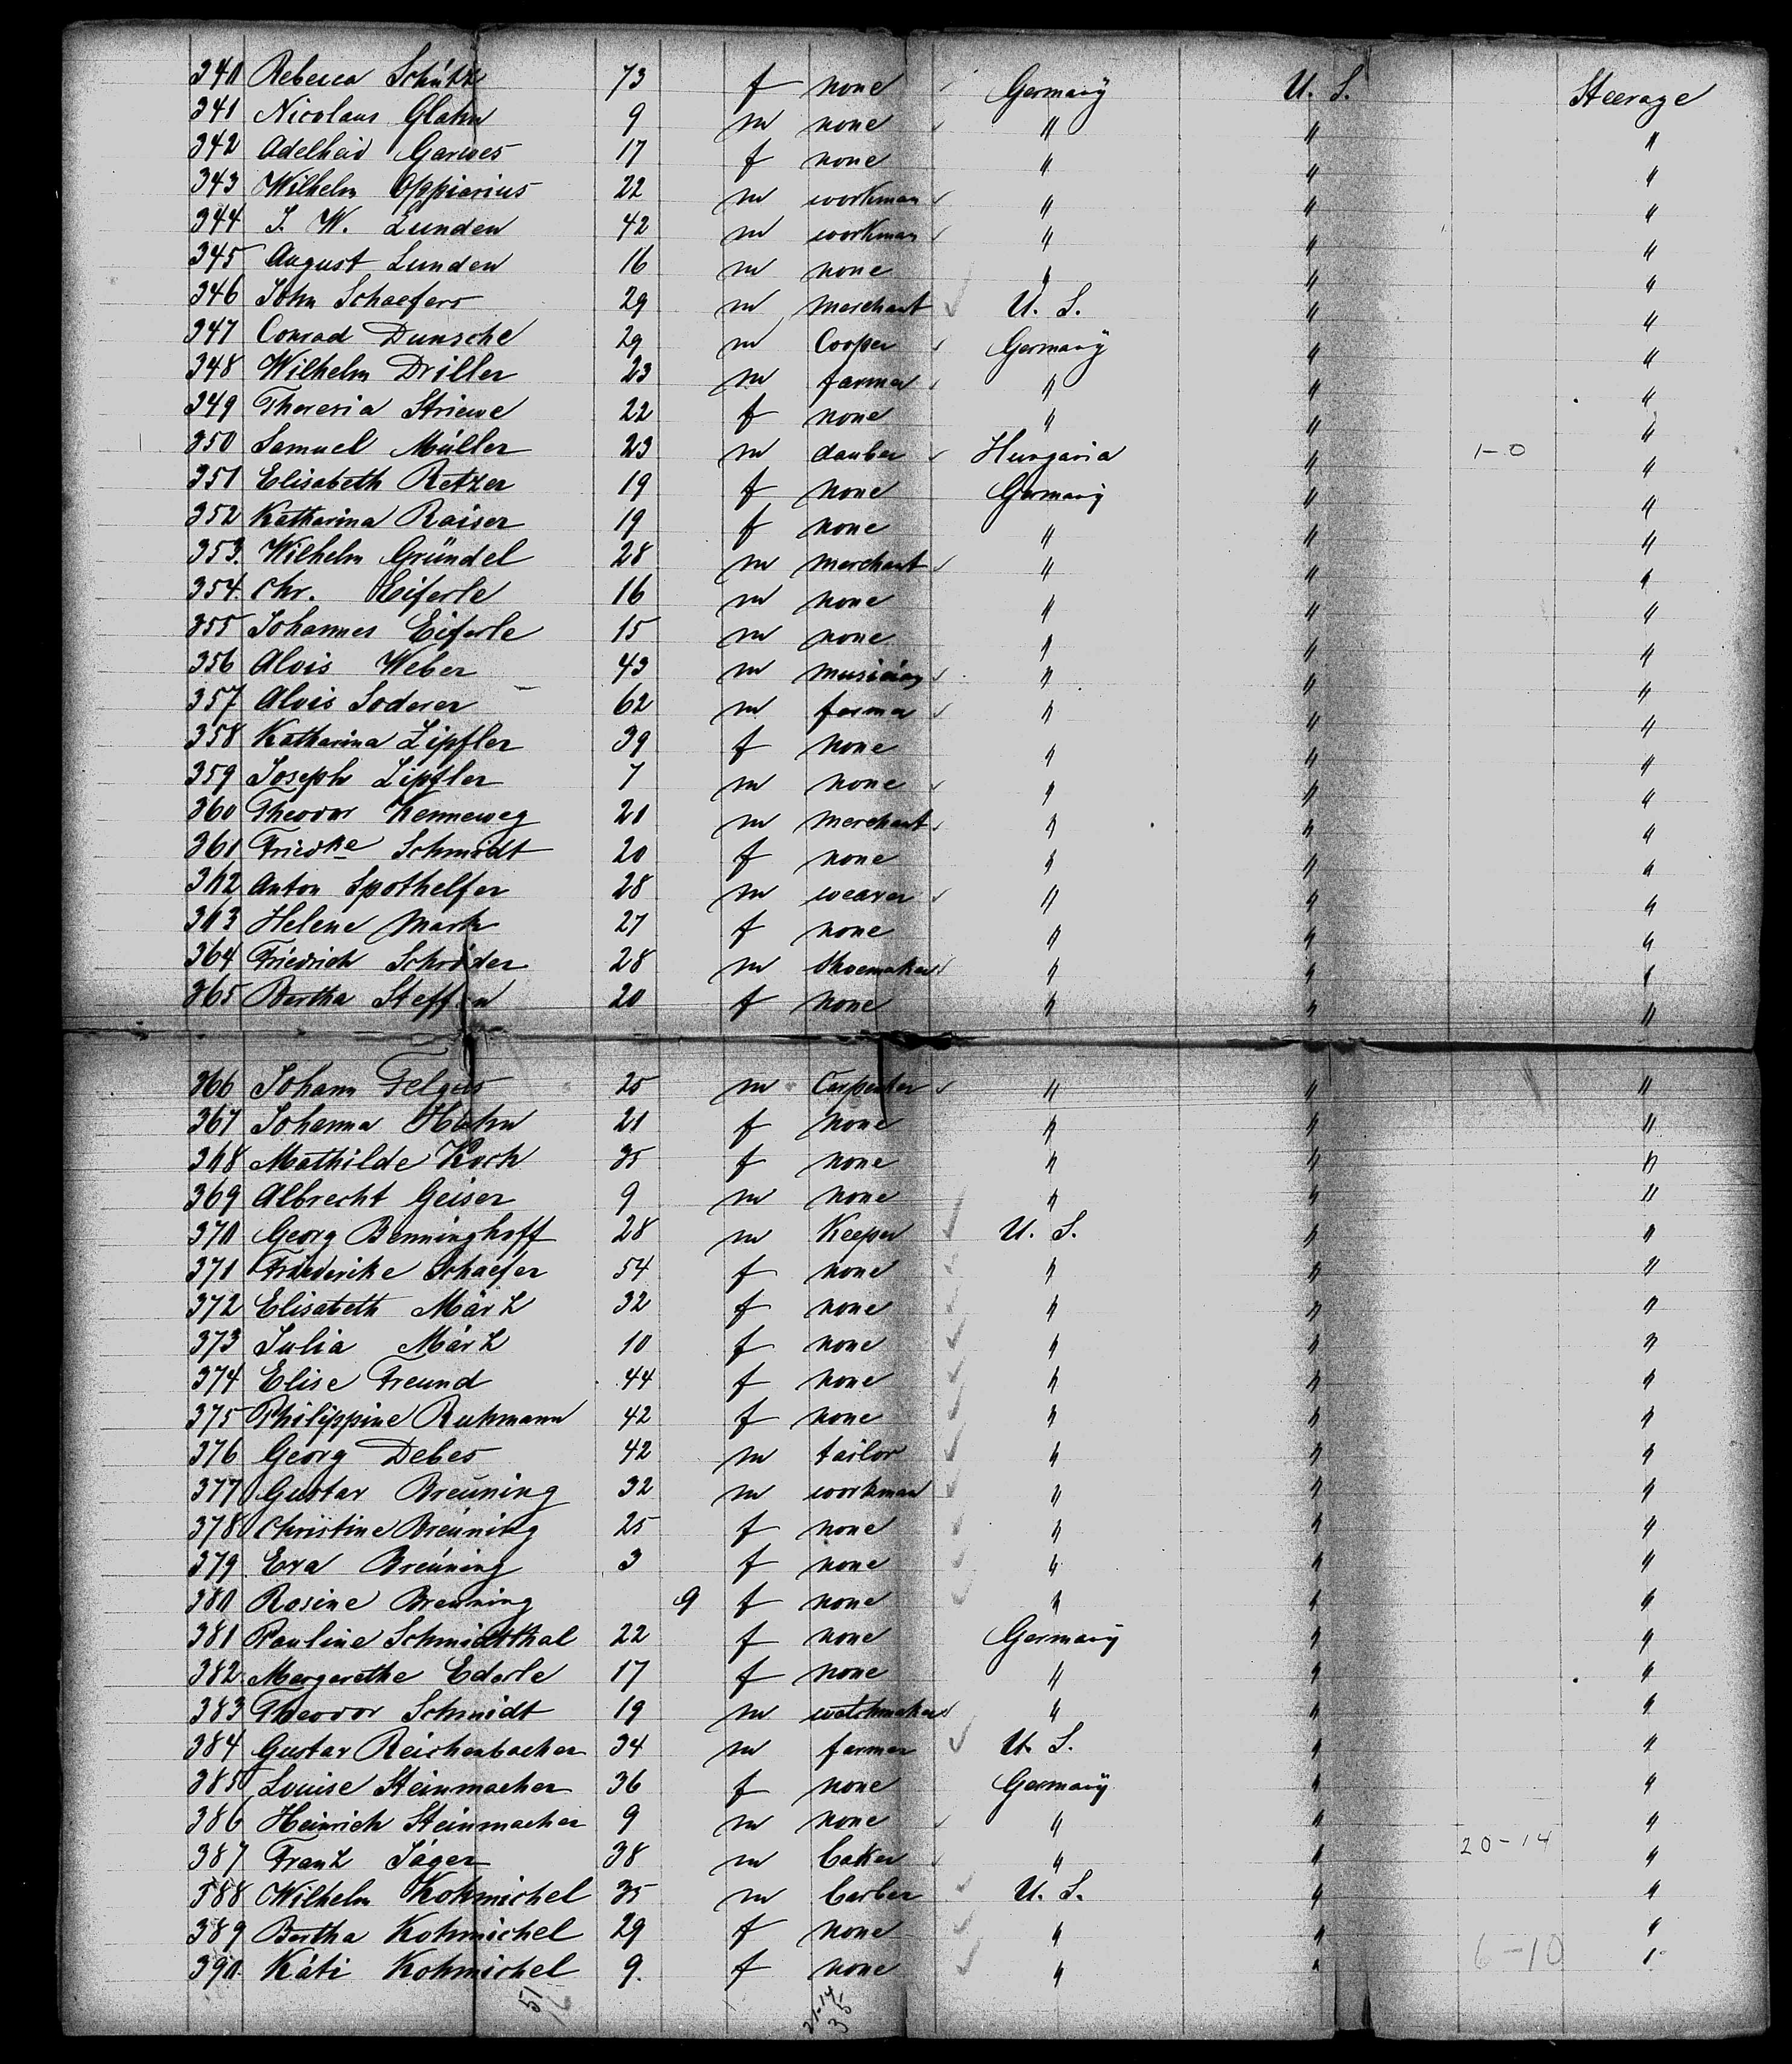 340 Rebecca Schütt 73 f none Germany U. S. Steerage
341 Nicolaus Glahn 9 m none " " "
342 Adelheid Garwes 17 f none " " "
343 Wilhelm Oppiarius 22 m workman " " "
344 J. W. Lunden 42 m workman " " "
345 August Lunden 16 m none " " "
346 John Schaefers 29 m merchant U. S. " "
347 Conrad Dunsche 29 m Cooper Germany " "
348 Wilhelm Driller 23 m farmer " " "
349 Theresia Striewe 22 f none " " "
350 Samuel Müller 23 m dauber Hungaria " 1-0 "
351 Elisabeth Retzer 19 f none Germany " "
352 Katharina Raiser 19 f none " " "
353. Wilhelm Gründel 28 m merchant " " "
354. Chr. Eiferle 16 m none " " "
355 Johannes Eiferle 15 m none " " "
356 Alois Weber 43 m musician " " "
357 Alois Soderer 62 m farmer " " "
358 Katharina Zipfler 39 f none " " "
359 Joseph Zipfler 7 m none " " "
360 Theodor Kenneweg 21 m merchant " " "
361 Friedke Schmidt 20 f none " " "
362 Anton Spothelfer 28 m weaver " " "
363 Helene Mark 27 f none " " "
364 Friedrich Schröder 28 m Shoemaker " " "
365 Bertha Steffen 20 f none " " "
366 Johann 25 m Carpenter " " "
367 Johanna Hahn 21 f none " " "
368 Mathilde Koch 35 f none " " "
369 Albrecht Geiser 9 m none " " "
370 Georg Benninghoff 28 m Keeper U. S. " "
371 Friederike Schaefer 54 f none " " "
372 Elisabeth März 32 f none " " "
373 Julia März 10 f none " " "
374 Elise Freund 44 f none " " "
375 Philippine Ruhmann 42 f none " " "
376 Georg Debes 42 m tailor " " "
377 Gustav Breuning 32 m workman " " "
378 Christine Breuning 25 f none " " "
379 Eva Breuning 3 f none " " "
380 Rosine Breuning 9 f none " " "
381 Pauline Schmidtthal 22 f none Germany " "
382. Margarethe Ederle 17 f none " " "
383 Theodor Schmidt 19 m watchmaker " " "
384 Gustav Reichenbacher 34 m farmer U. S. " "
385 Louise Steinmacher 36 f none Germany " "
386 Heinrich Steinmacher 9 m none " " "
387 Franz Jäger 38 m baker " " 20-14 "
388 Wilhelm Kohmichel 35 m barber U. S. " "
389 Bertha Kohmichel 29 f none " " "
390. Käti Kohmichel 9. f none " " 6-10 "
51
21-14
35